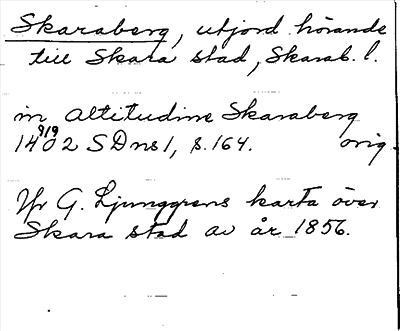 Skaraberg, utjord hörande
till Skara stad, Skarab. l.
in altitudine Skaraberg
14 9/9 02 SDns 1, s. 164. orig.
Yr G. Ljunggrens karta över
Skara stad av år 1856.